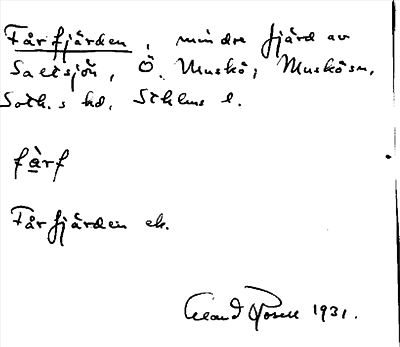 Fårfjärden, mindre fjärd av
Saltsjön, Ö. Muskö, Muskö sn,
Soth.s hd. Sthlms l.
fàrf
Fårfjärden ek.
Claand Rosell 1931.